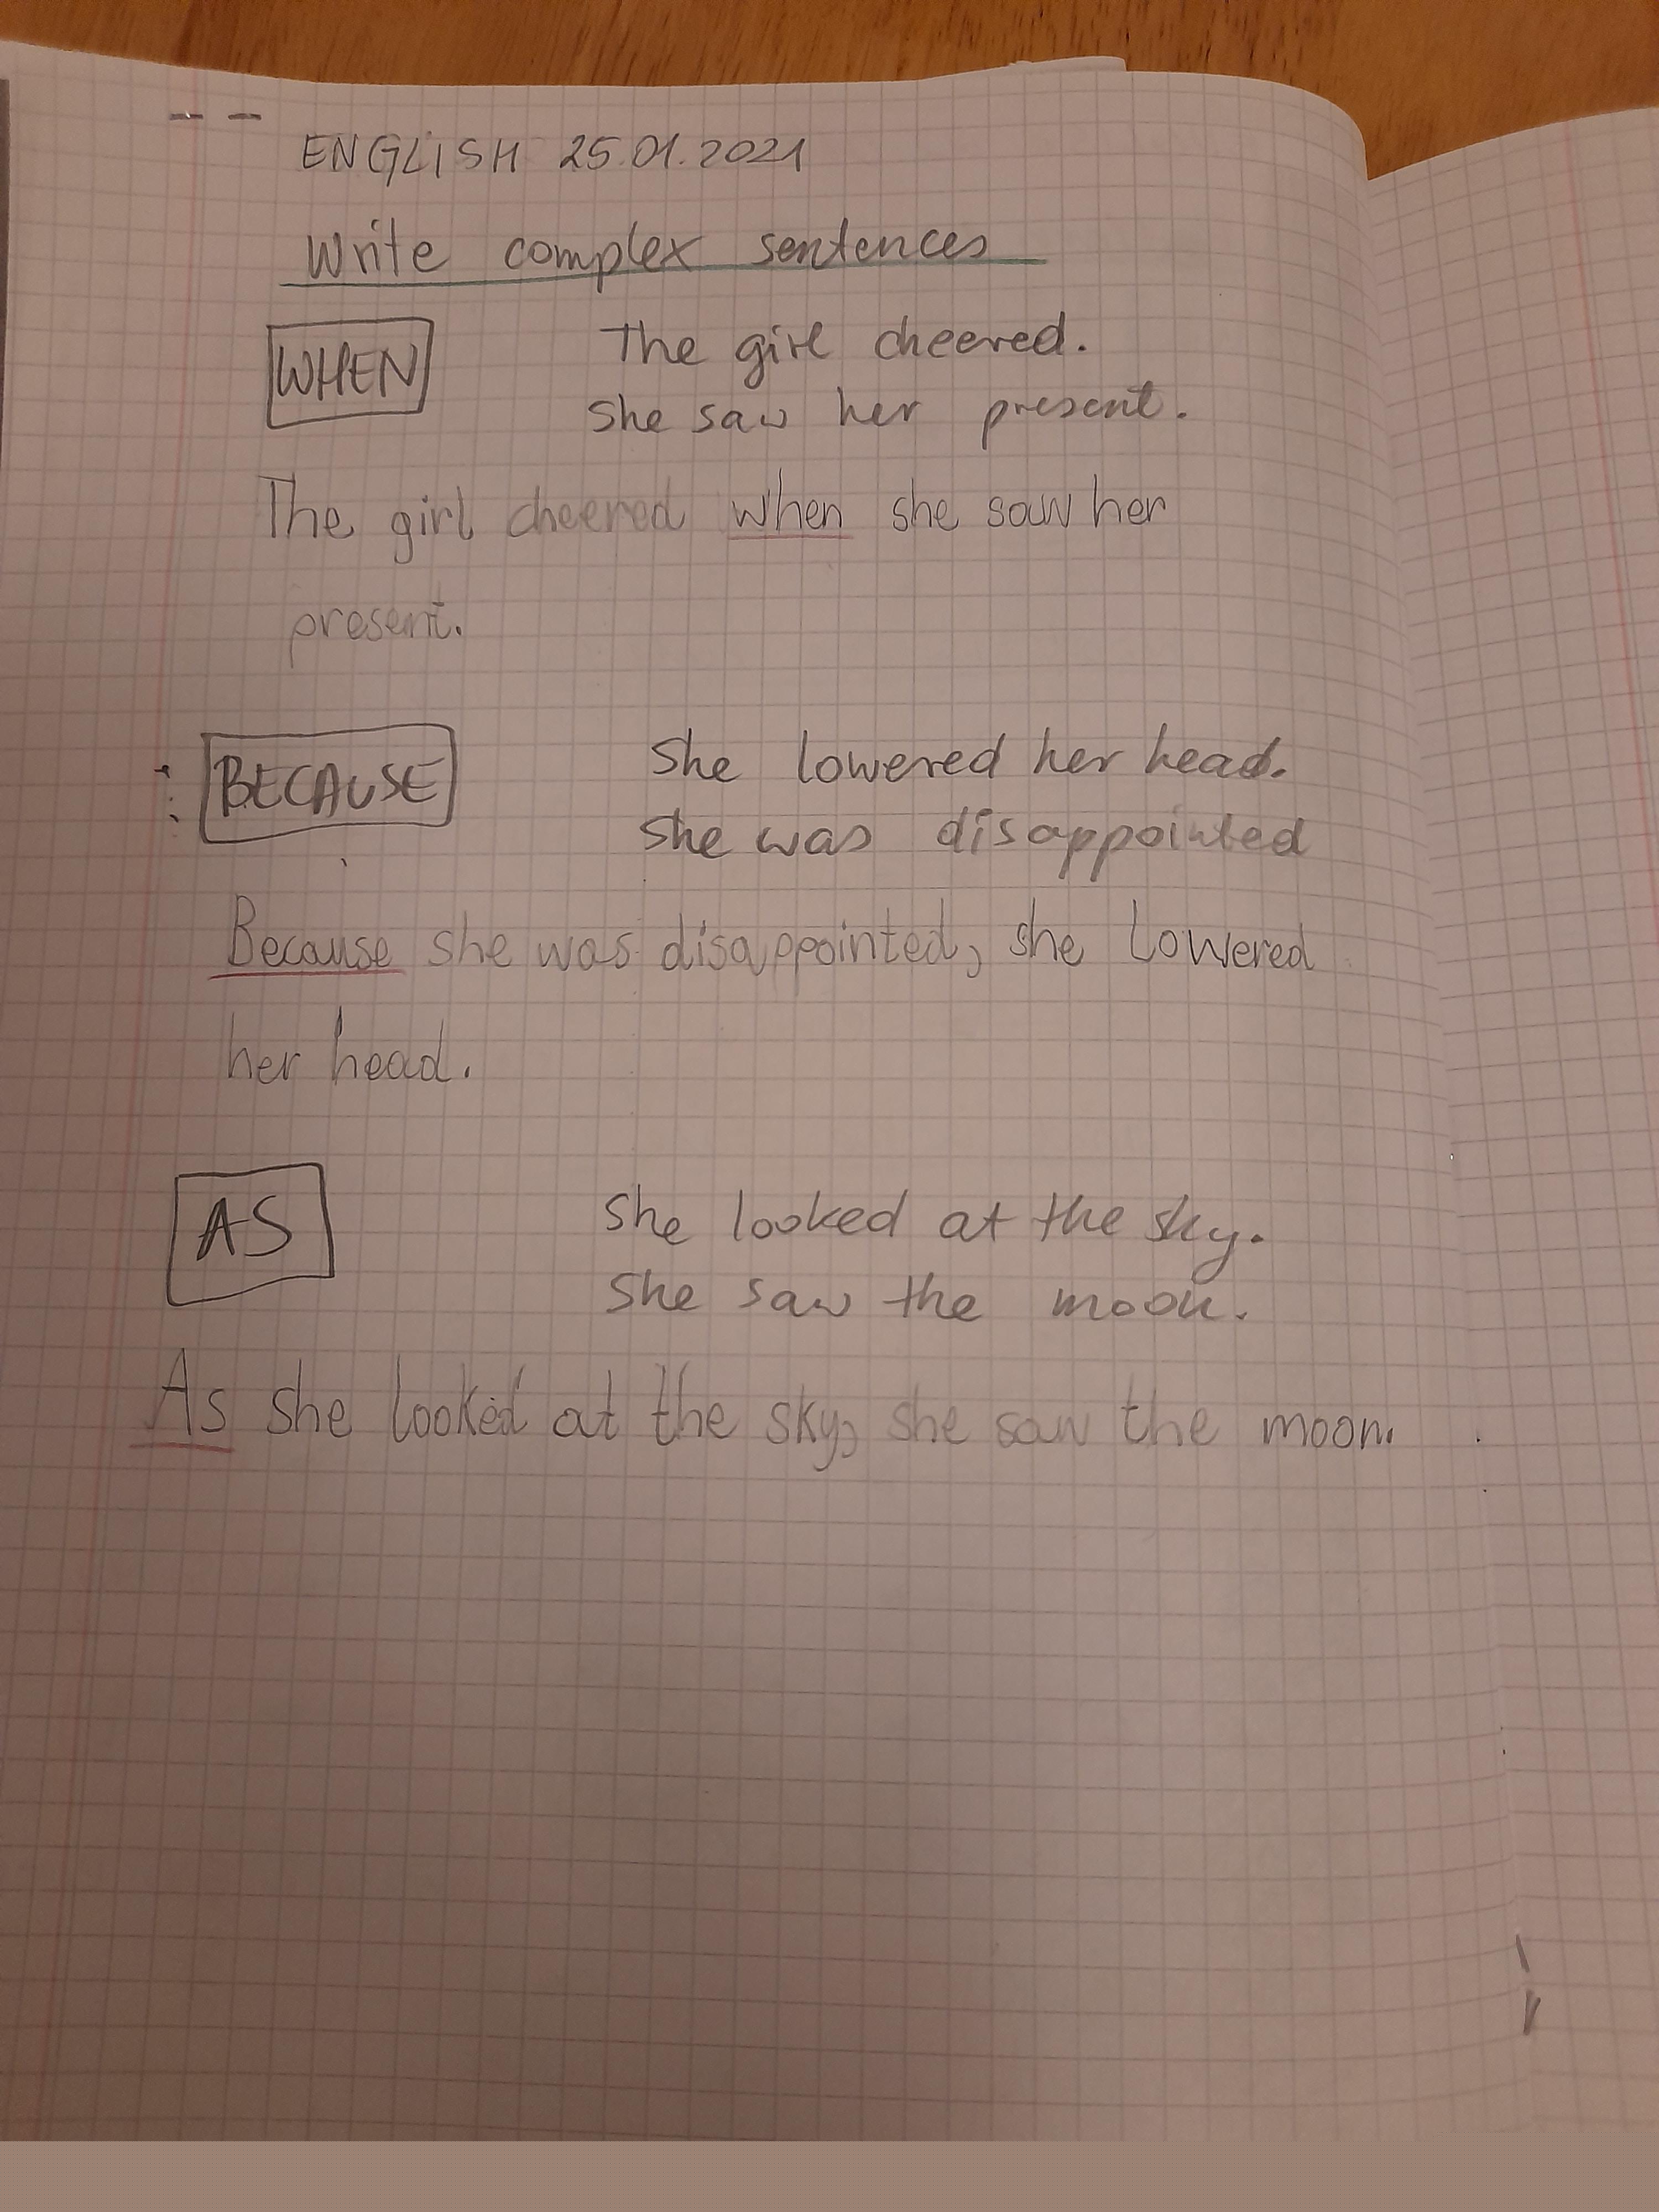 ENGLISH 25.01.2021
Write complex sentences
WHEN The girl cheered.
She saw her present.
The girl cheered when she saw her
present.
BECAUSE She lowered her head.
She was disappointed
Because she was disappointed, she lowered
her head.
AS She looked at the sky.
She saw the moon.
As she looked at the sky, she saw the moon.